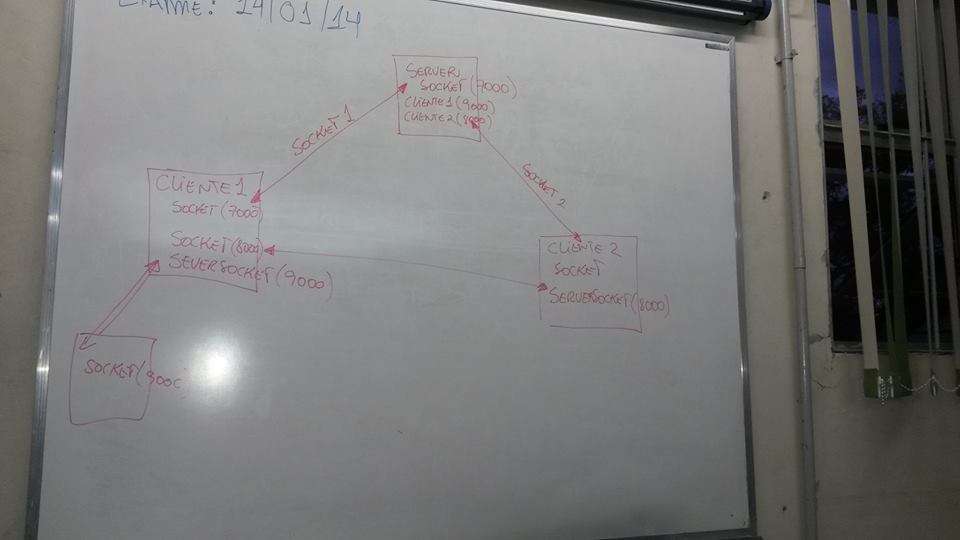 EXAME: 14/01/14
SERVER
SOCKET (7000)
CLIENTE 1 (9000)
CLIENTE 2 (8000)
SOCKET 1
SOCKET 2
CLIENTE 1
SOCKET (7000)
SOCKET (8000)
SEVERSOCKET (9000)
CLIENTE 2
SOCKET
SERVERSOCKET (8000)
SOCKET (900